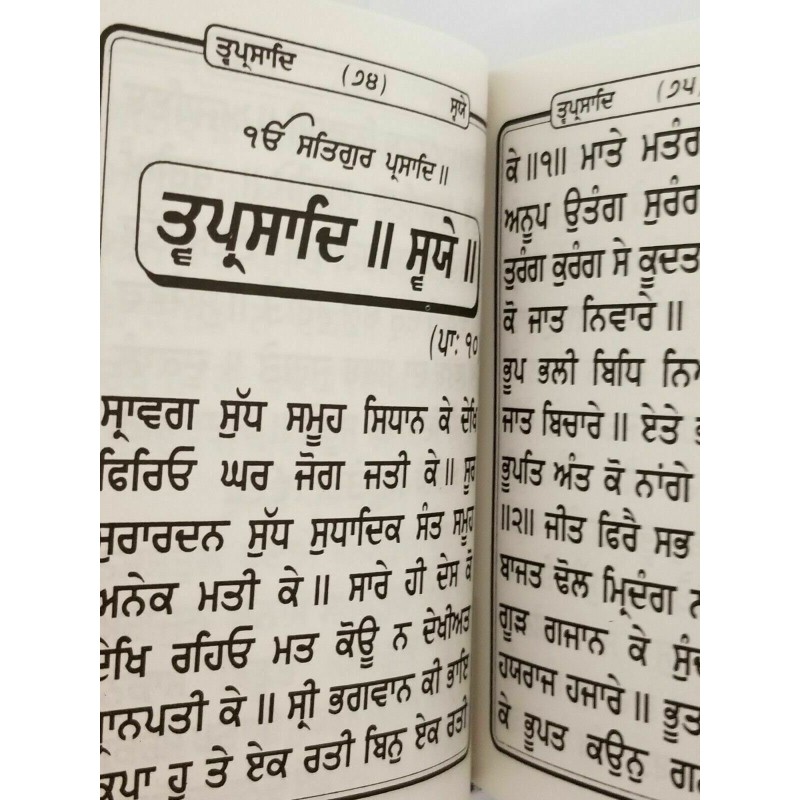 ਤ੍ਵਪ੍ਰਸਾਦਿ (੭੪) ਸ੍ਵਯੇ
ੴ ਸਤਿਗੁਰ ਪ੍ਰਸਾਦਿ॥
ਤ੍ਵਪ੍ਰਸਾਦਿ॥ ਸ੍ਵਯੇ॥
(ਪਾ: ੧੦
ਸ੍ਰਾਵਗ ਸੁੱਧ ਸਮੂਹ ਸਿਧਾਨ ਕੇ ਦੇਖਿ
ਫਿਰਿਓ ਘਰ ਜੋਗ ਜਤੀ ਕੇ॥ ਸੂਰ
ਸੁਰਾਰਦਨ ਸੁੱਧ ਸੁਧਾਦਿਕ ਸੰਤ ਸਮੂਹ
ਅਨੇਕ ਮਤੀ ਕੇ॥ ਸਾਰੇ ਹੀ ਦੇਸ ਕੋ
ਦੇਖਿ ਰਹਿਓ ਮਤ ਕੋਊ ਨ ਦੇਖੀਅਤ
ਪ੍ਰਾਨਪਤੀ ਕੇ॥ ਸ੍ਰੀ ਭਗਵਾਨ ਕੀ ਭਾਇ
ਕ੍ਰਿਪਾ ਹੁ ਤੇ ਏਕ ਰਤੀ ਬਿਨੁ ਏਕ ਰਤੀ
ਤ੍ਵਪ੍ਰਸਾਦਿ (੭੫)
ਕੇ॥੧॥ ਮਾਤੇ ਮਤੰਗ
ਅਨੂਪ ਉਤੰਗ ਸੁਰੰਗ
ਤੁਰੰਗ ਕੁਰੰਗ ਸੇ ਕੂਦਤ
ਕੋ ਜਾਤ ਨਿਵਾਰੇ॥
ਭੂਪ ਭਲੀ ਬਿਧਿ
ਜਾਤ ਬਿਚਾਰੇ॥ ਏਤੇ
ਭੂਪਤਿ ਅੰਤ ਕੋ ਨਾਂਗੇ
॥੨॥ ਜੀਤ ਫਿਰੈ ਸਭ
ਬਾਜਤ ਢੋਲ ਮ੍ਰਿਦੰਗ
ਗੂੜ ਗਜਾਨ ਕੇ
ਹਯਰਾਜ ਹਜਾਰੇ॥
ਕੇ ਭੂਪਤ ਕਉਨੁ